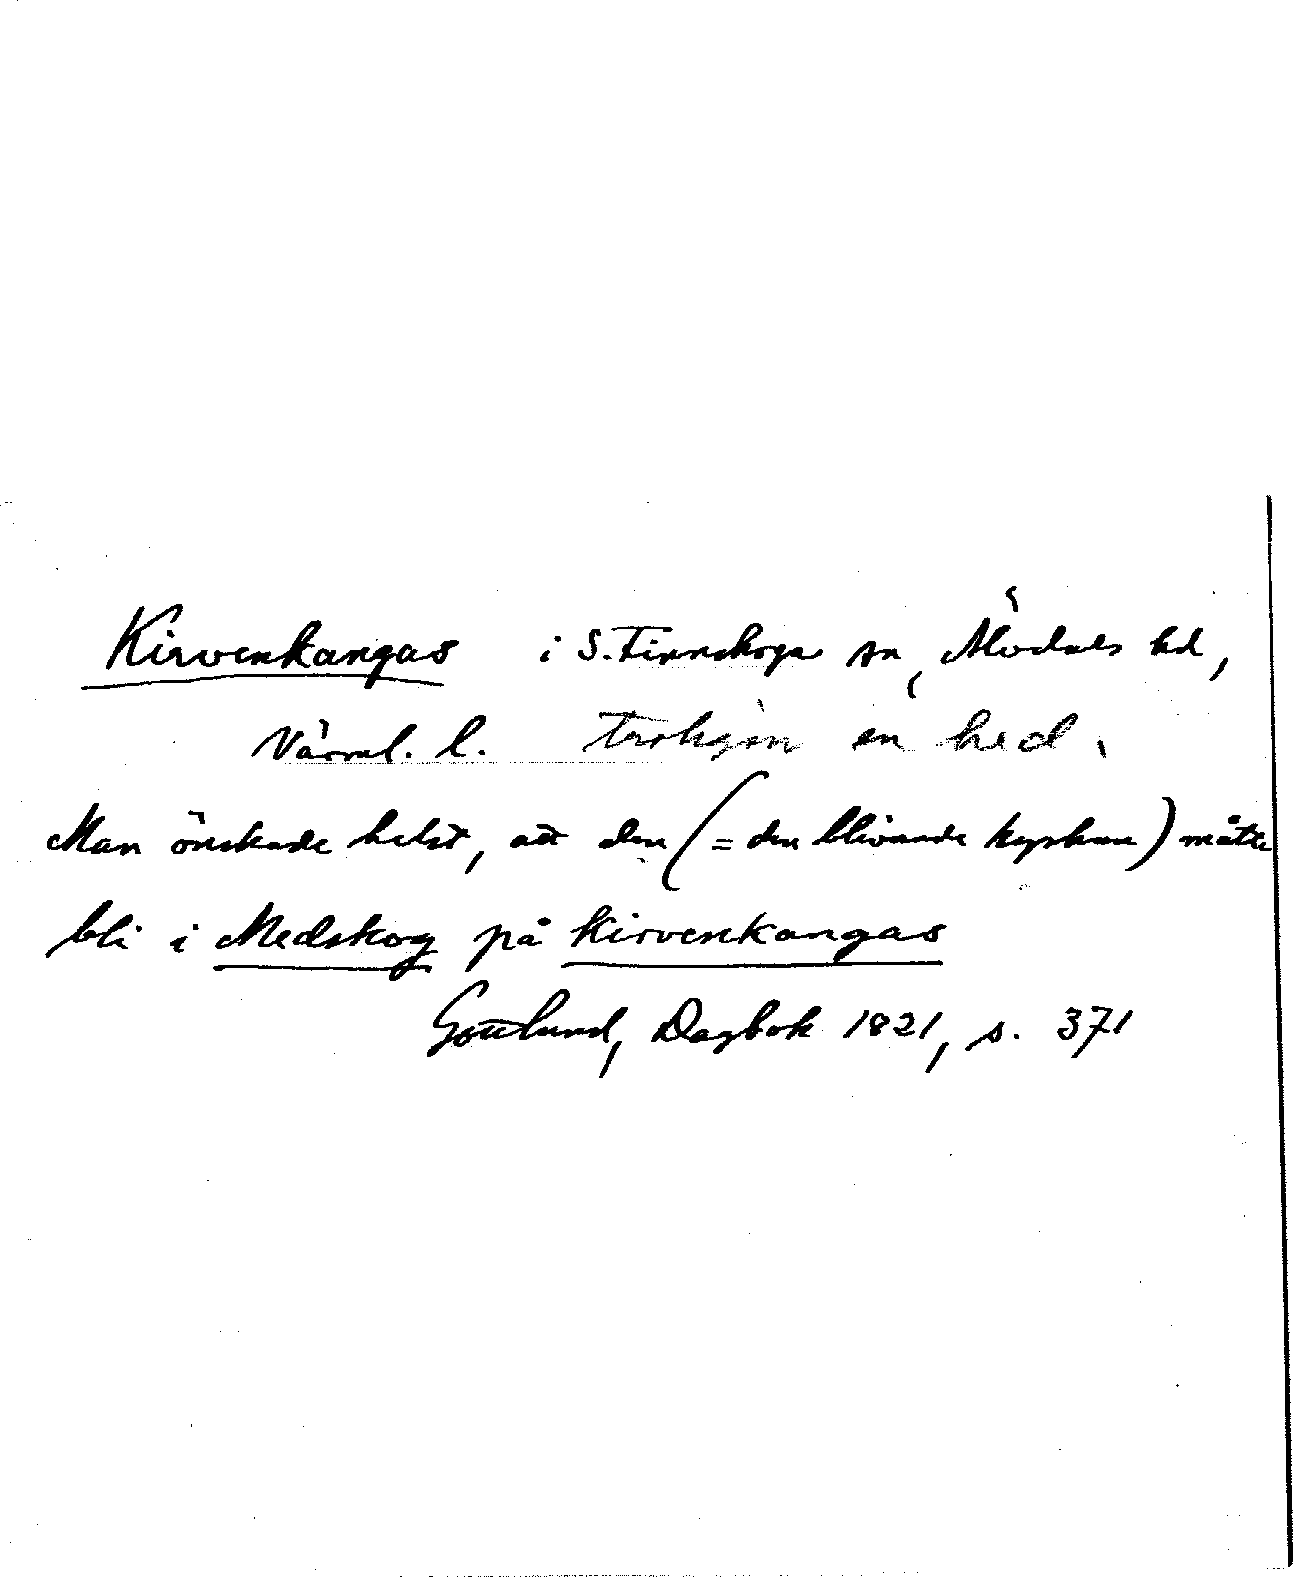 Kirvenkangas i S. Finnskoga sn, Älvdals hd,
Värml. l. troligen en hed.
Man önskade helst, att den (= den blivande kyrkan) måtte
bli i Medskog på Kirvenkangas
Gottlund, Dagbok 1821, s. 371